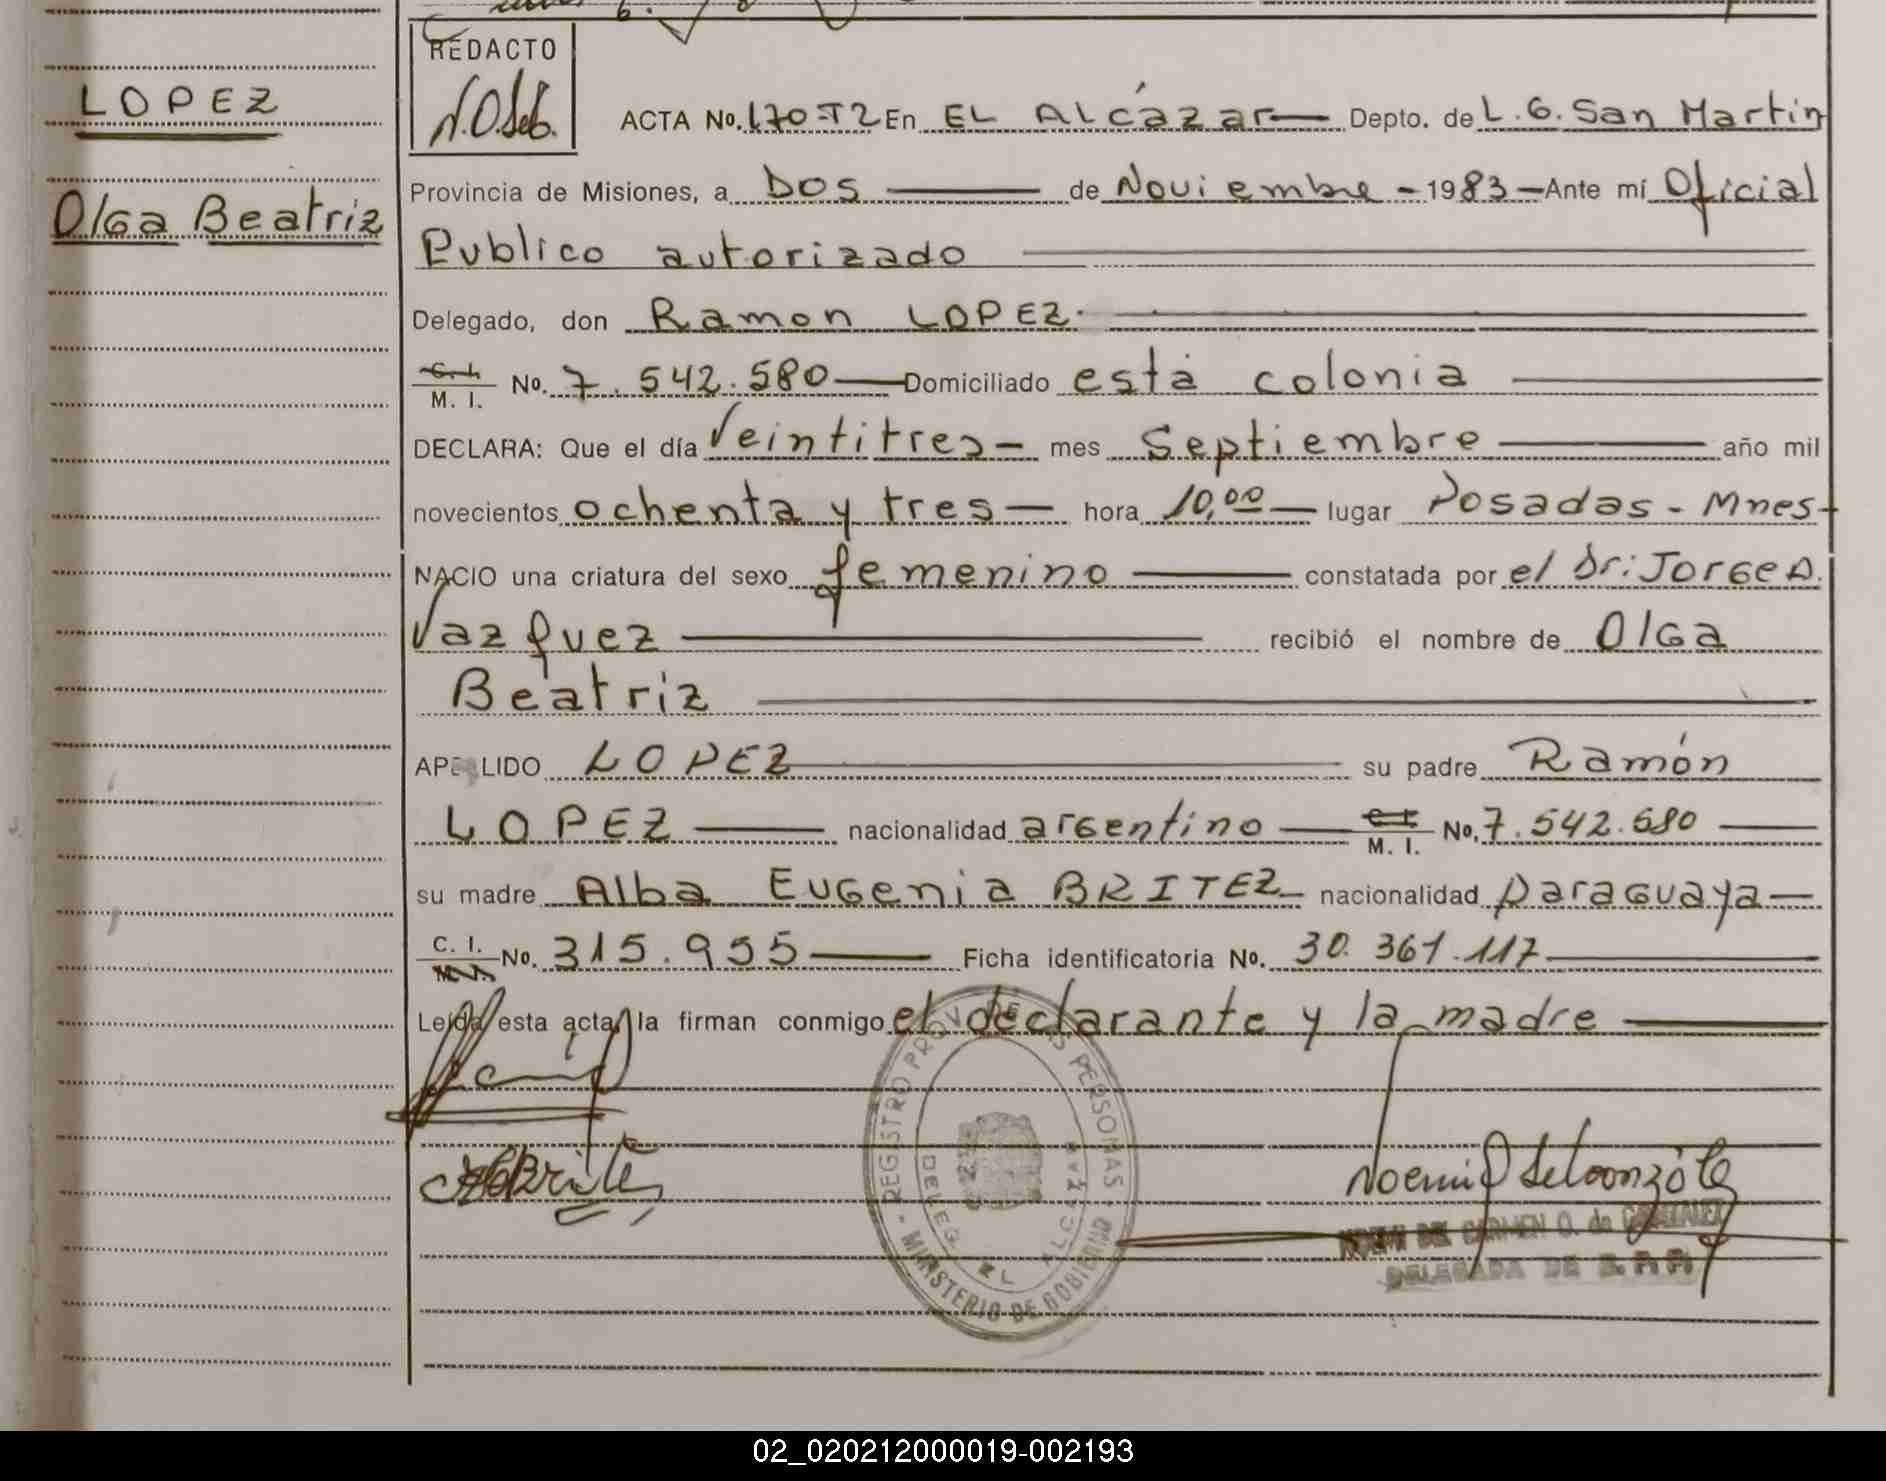 REDACTO
LOPEZ
Olga Beatriz
ACTA No. 170-T2 En EL ALcázar Depto. de L. G. San Martin
Provincia de Misiones, a Dos de Noviembre - 1983 Ante mí Oficial
Publico autorizado
Delegado, don Ramon LOPEZ.
C. I. M. I. No. 7.542.580 Domiciliado está colonia
DECLARA: Que el día Veintitres mes Septiembre año mil
novecientos ochenta y tres hora 10,00 lugar Posadas - Mnes
NACIO una criatura del sexo femenino constatada por el Dr: Jorge A.
Vazquez recibió el nombre de Olga
Beatriz
APELLIDO LOPEZ su padre Ramón
LOPEZ nacionalidad argentino C. I. M. I. No. 7.542.580
su madre Alba Eugenia BRITEZ nacionalidad paraguaya
C. I. M. I. No. 315.955 Ficha identificatoria No. 30.361.117
Leída esta acta, la firman conmigo el declarante y la madre
REGISTRO PROV. DE LAS PERSONAS
DELEG. EL ALCAZAR
MINISTERIO DE GOBIERNO
NOEMI DEL CARMEN O. de GONZALEZ
DELEGADA DE R. P. P.
02_020212000019-002193